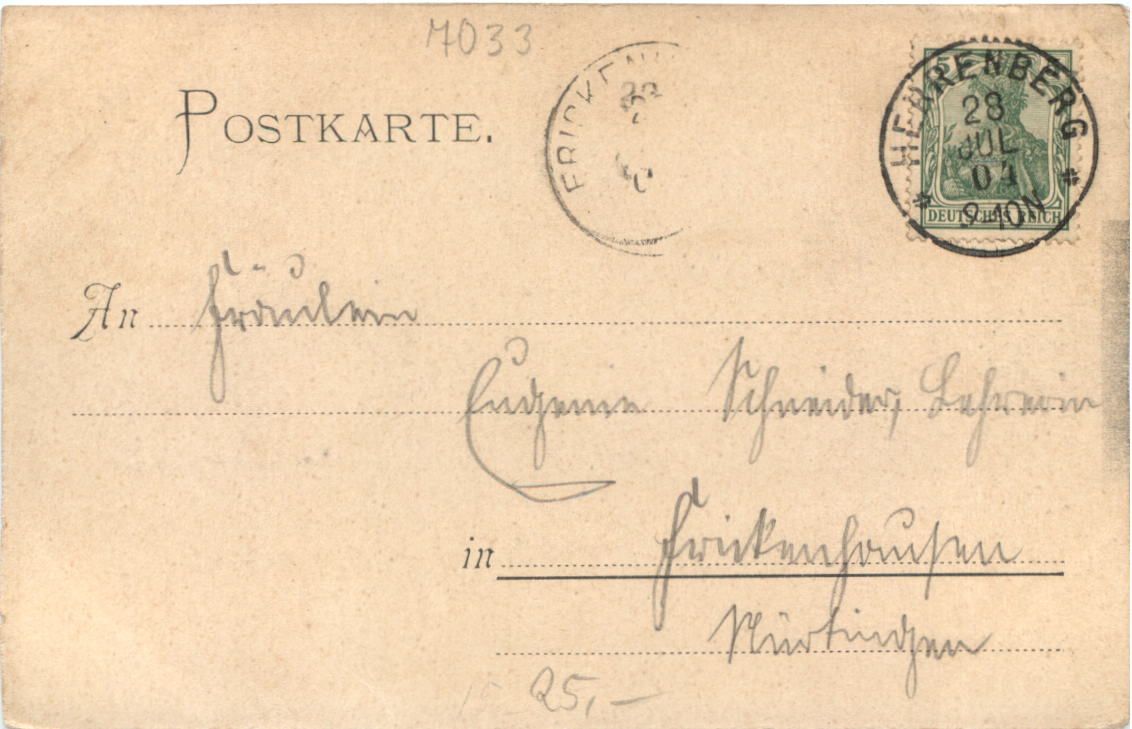 7033
POSTKARTE.
FRICKEN
HERRENBERG
28
JUL
04
9-10N
5
DEUTSCHES REICH
An Fräulein
Eugenie Schneider, Lehrerin
in Frickenhausen
Nürtingen
25,-